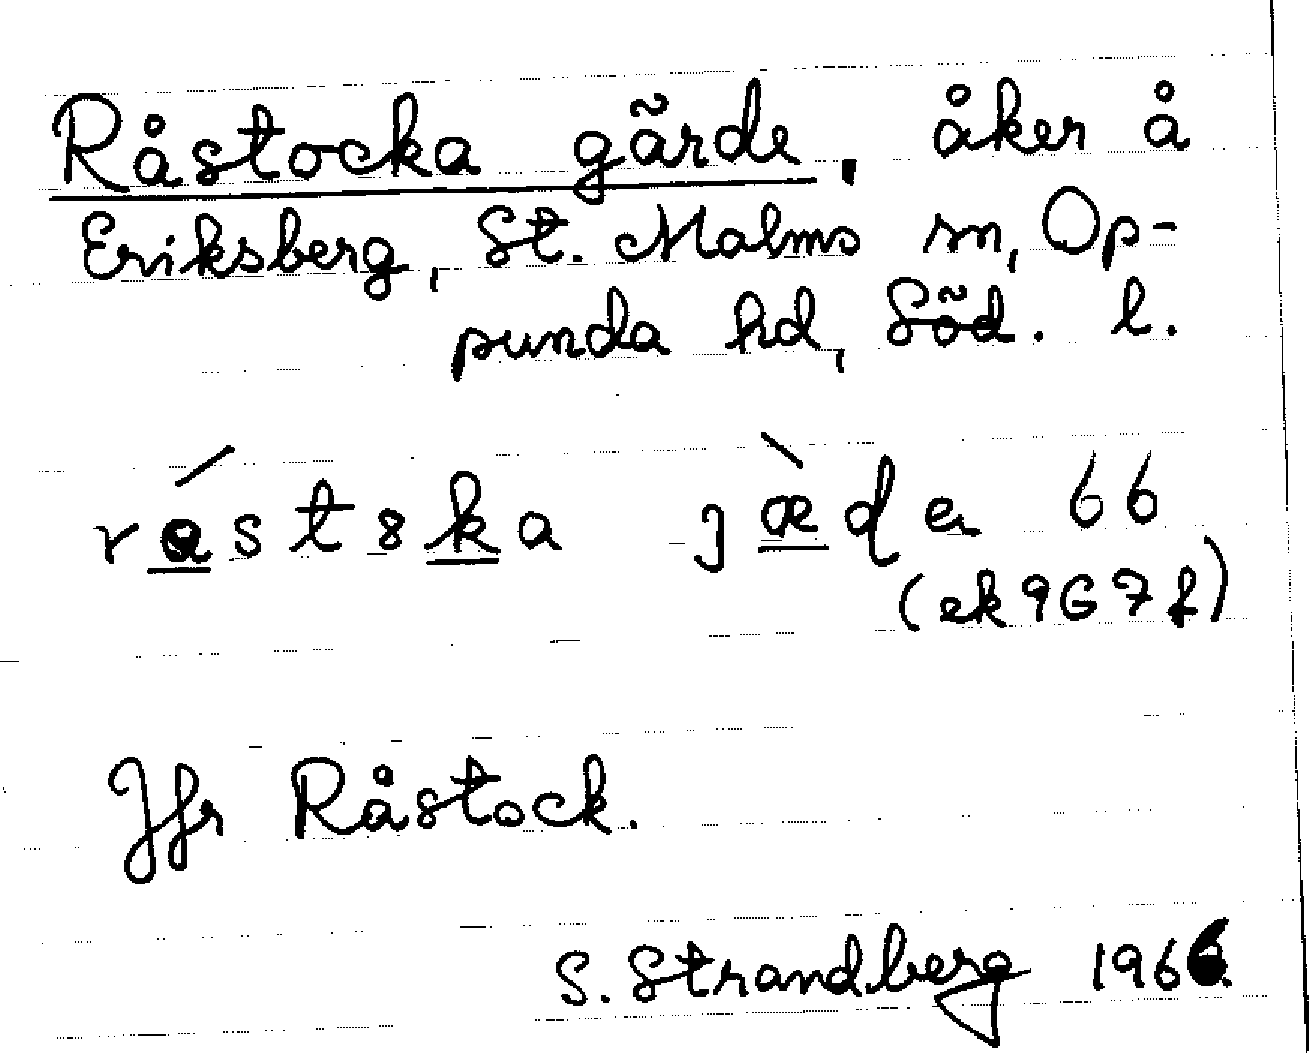 Råstocka gärde, åker å
Eriksberg, St. Malms sn, Op-
punda hd, Söd. l.
66
(ek 9G7f)
Jfr Råstock.
S. Strandberg 1966